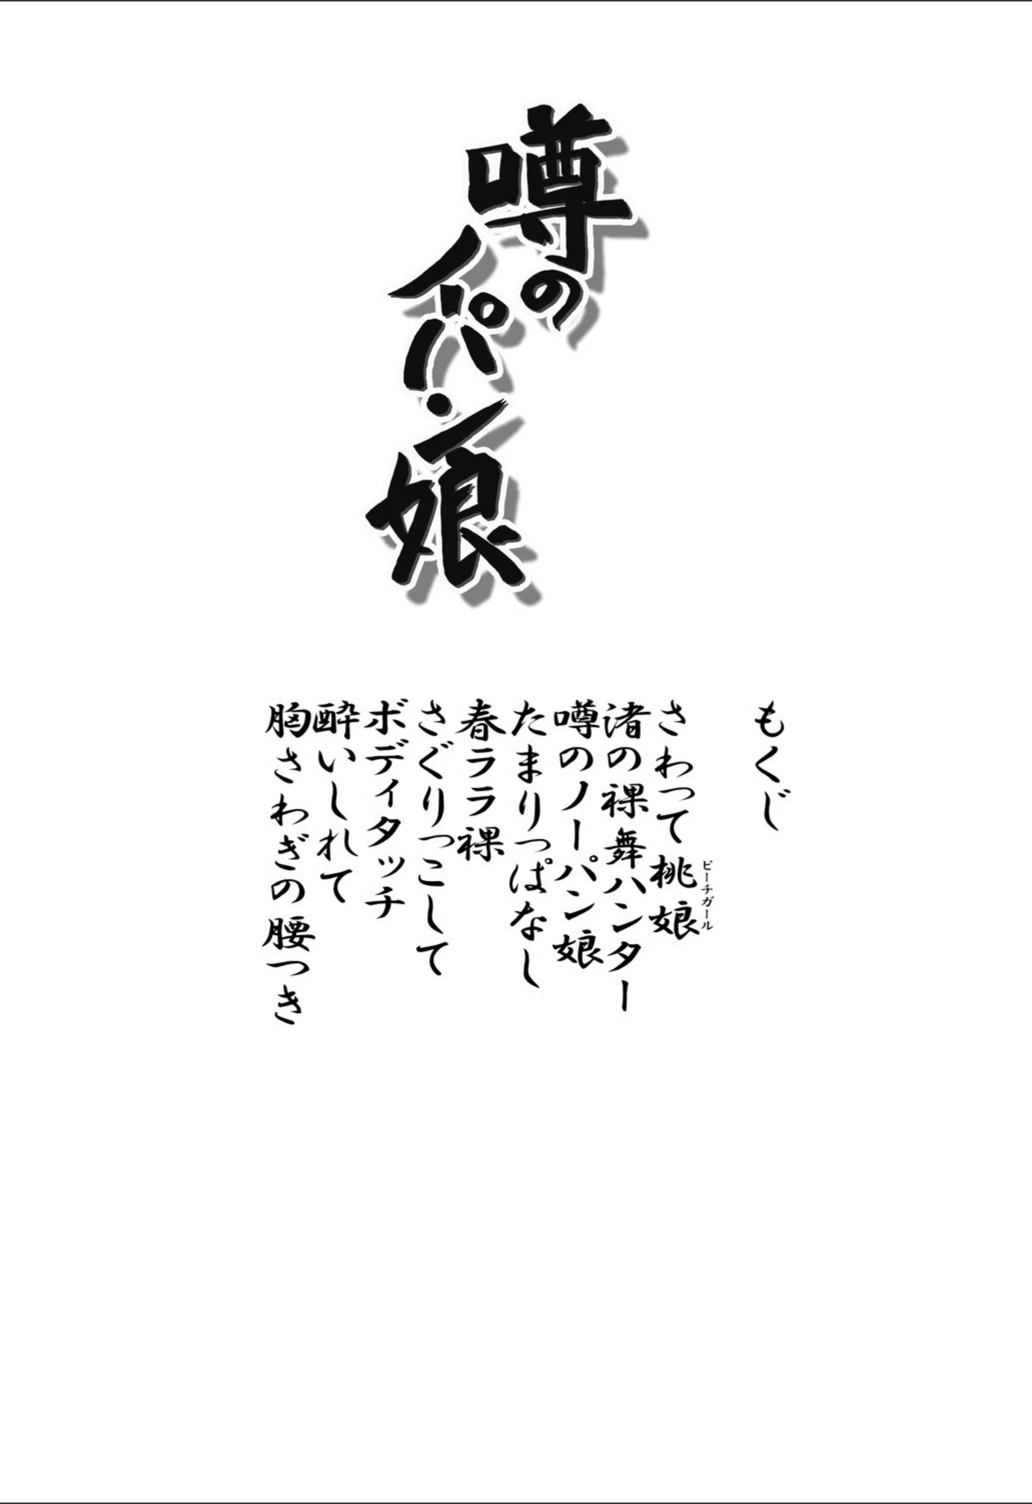 噂の
ノーパン娘
もくじ
さわって桃娘
ピーチガール
渚の裸舞ハンター
噂のノーパン娘
たまりっぱなし
春ララ裸
さぐりっこして
ボディタッチ
酔いしれて
胸さわぎの腰つき